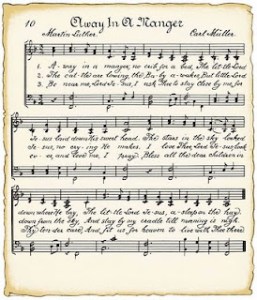 10 Away In A Manger
Martin Luther. Carl Müller.
1. A-way in a manger, no crib for a bed, The lit-tle Lord
2. The cat-tle are lowing, the Ba-by a-wakes, But little Lord
3. Be near me, Lord Je-sus, I ask Thee to stay Close by me for
Je-sus laid down His sweet head. The stars in the sky looked
Je-sus, no cry-ing He makes. I love Thee, Lord Je-sus, look
ev-er, and love me, I pray. Bless all the dear children in
down where He lay, The lit-tle Lord Je-sus, a-sleep on the hay.
down from the sky, And stay by my cradle till morning is nigh.
Thy tender care, And fit us for heaven to live with Thee there.